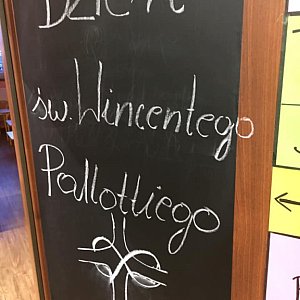 Dzień
św. Wincentego
Pallottiego